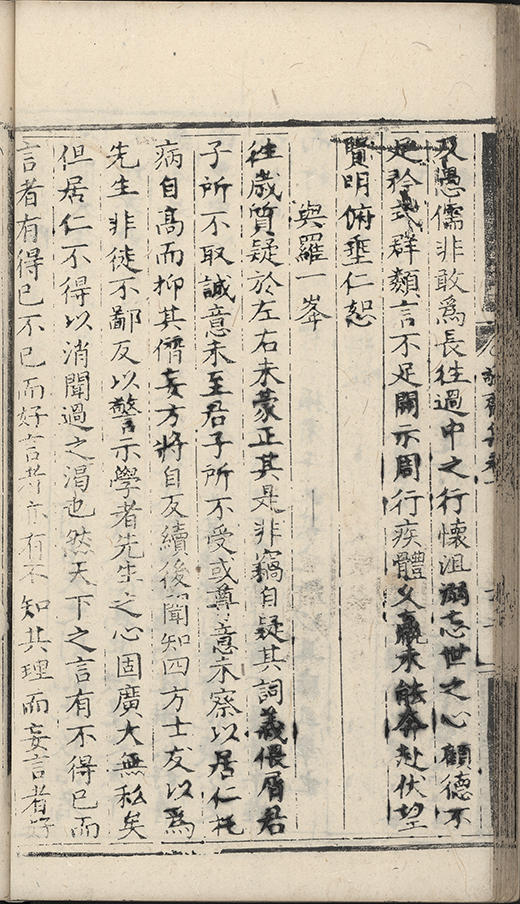 及愚儒非敢爲長往過中之行懷沮溺忘世之心顧德不
足矜式群類言不足開示周行疾體又羸未能奔赴伏望
賢明俯垂仁恕
與羅一峯
往歲質疑於左右未蒙正其是非竊自疑其詞義偎屑君
子所不取誠意未至君子所不受或尊意未察以居仁托
病自高而抑其儕妄方將自反續後聞知四方士友以爲
先生非徒不鄙反以警示學者先生之心固廣大無私矣
但居仁不得以消聞過之渴也然天下之言有不得已而
言者有得已不已而好言者亦有不知其理而妄言者好
敬齋集卷一